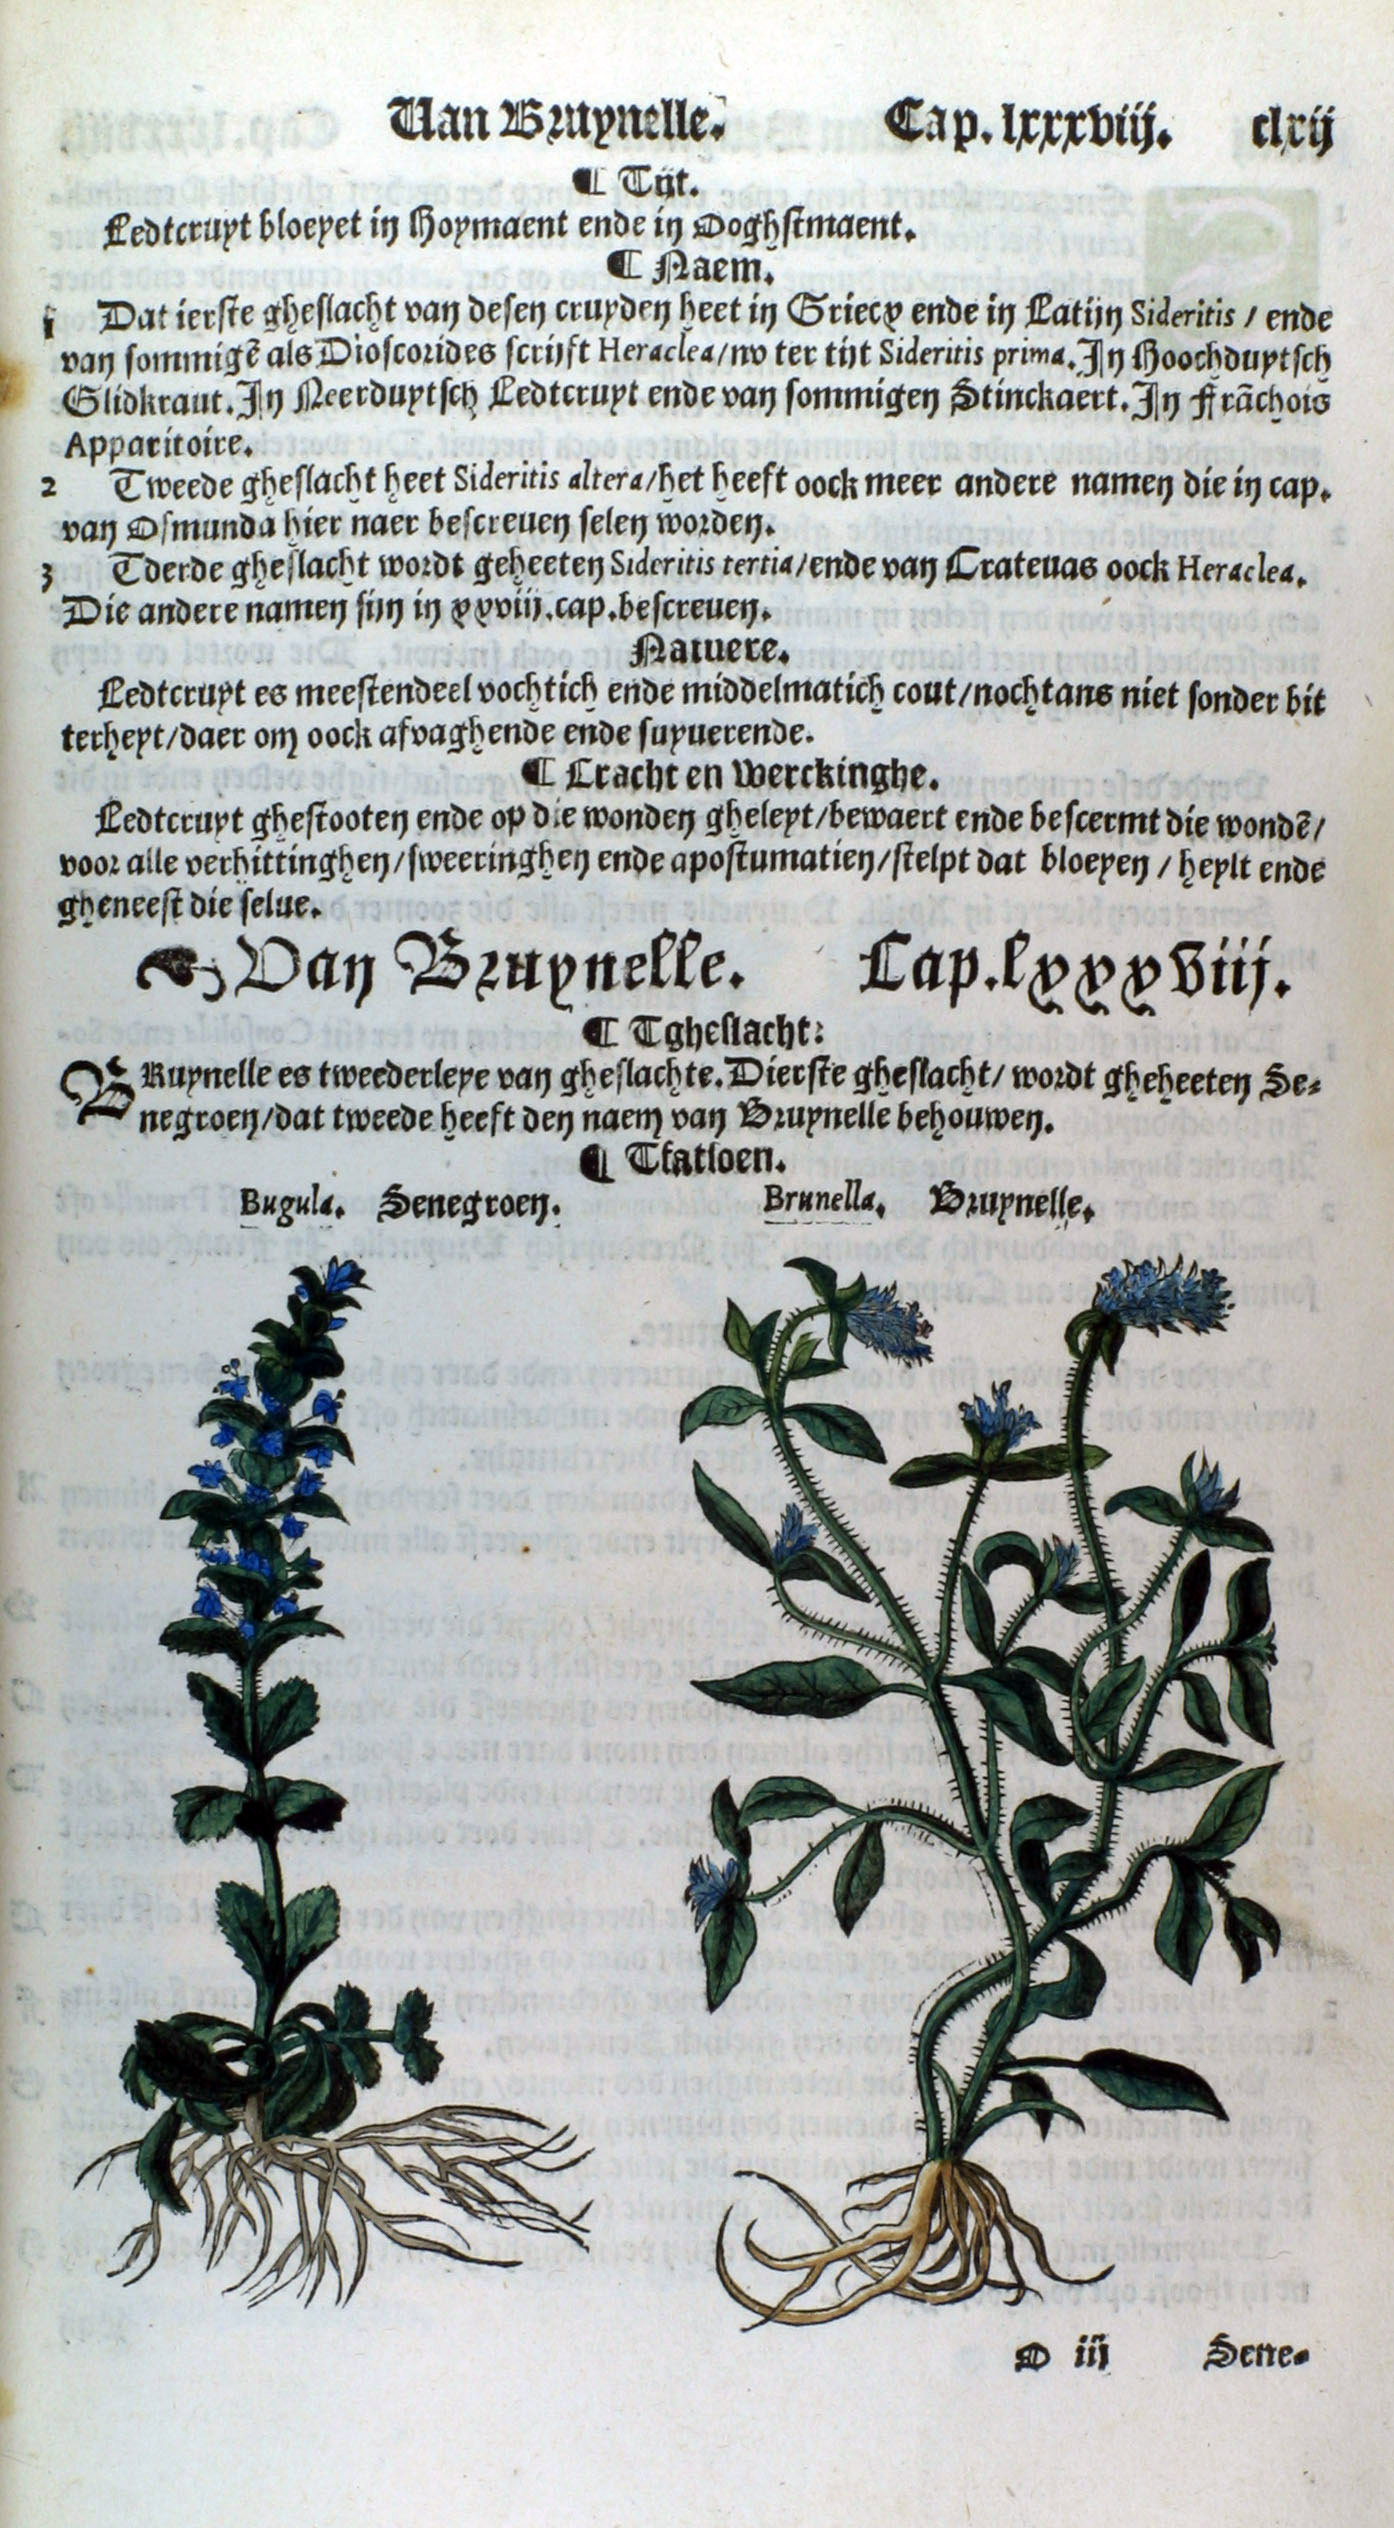 Van Bruynelle. Cap. lxxxviij. clxij
¶ Tijt.
Ledtcruyt bloeyet in Hoymaent ende in Ooghstmaent.
¶ Naem.
1 Dat ierste gheslacht van desen cruyden heet in Griecx ende in Latijn Sideritis / ende
van sommigē als Dioscorides scrijft Heraclea/nv ter tijt Sideritis prima. In Hoochduytsch
Glidkraut. In Neerduytsch Ledtcruyt ende van sommigen Stinckaert. In Frāchois
Apparitoire.
2 Tweede gheslacht heet Sideritis altera/het heeft oock meer andere namen die in cap.
van Osmunda hier naer bescreuen selen worden.
3 Tderde gheslacht wordt geheeten Sideritis tertia/ende van Crateuas oock Heraclea.
Die andere namen sijn in xxviij.cap.bescreuen.
Natuere.
Ledtcruyt es meestendeel vochtich ende middelmatich cout/nochtans niet sonder bit
terheyt/daer om oock afvaghende ende suyuerende.
¶ Cracht en Werckinghe.
Ledtcruyt ghestooten ende op die wonden gheleyt/bewaert ende bescermt die wondē/
voor alle verhittinghen/sweeringhen ende apostumatien/stelpt dat bloeyen / heylt ende
gheneest die selue.
Van Bruynelle. Cap.lxxxviij.
¶ Tgheslacht:
BRuynelle es tweederleye van gheslachte. Dierste gheslacht/ wordt gheheeten Se-
negroen/dat tweede heeft den naem van Bruynelle behouwen.
¶ Tfatsoen.
Bugula. Senegroen. Brunella. Bruynelle.
O iij Sene-